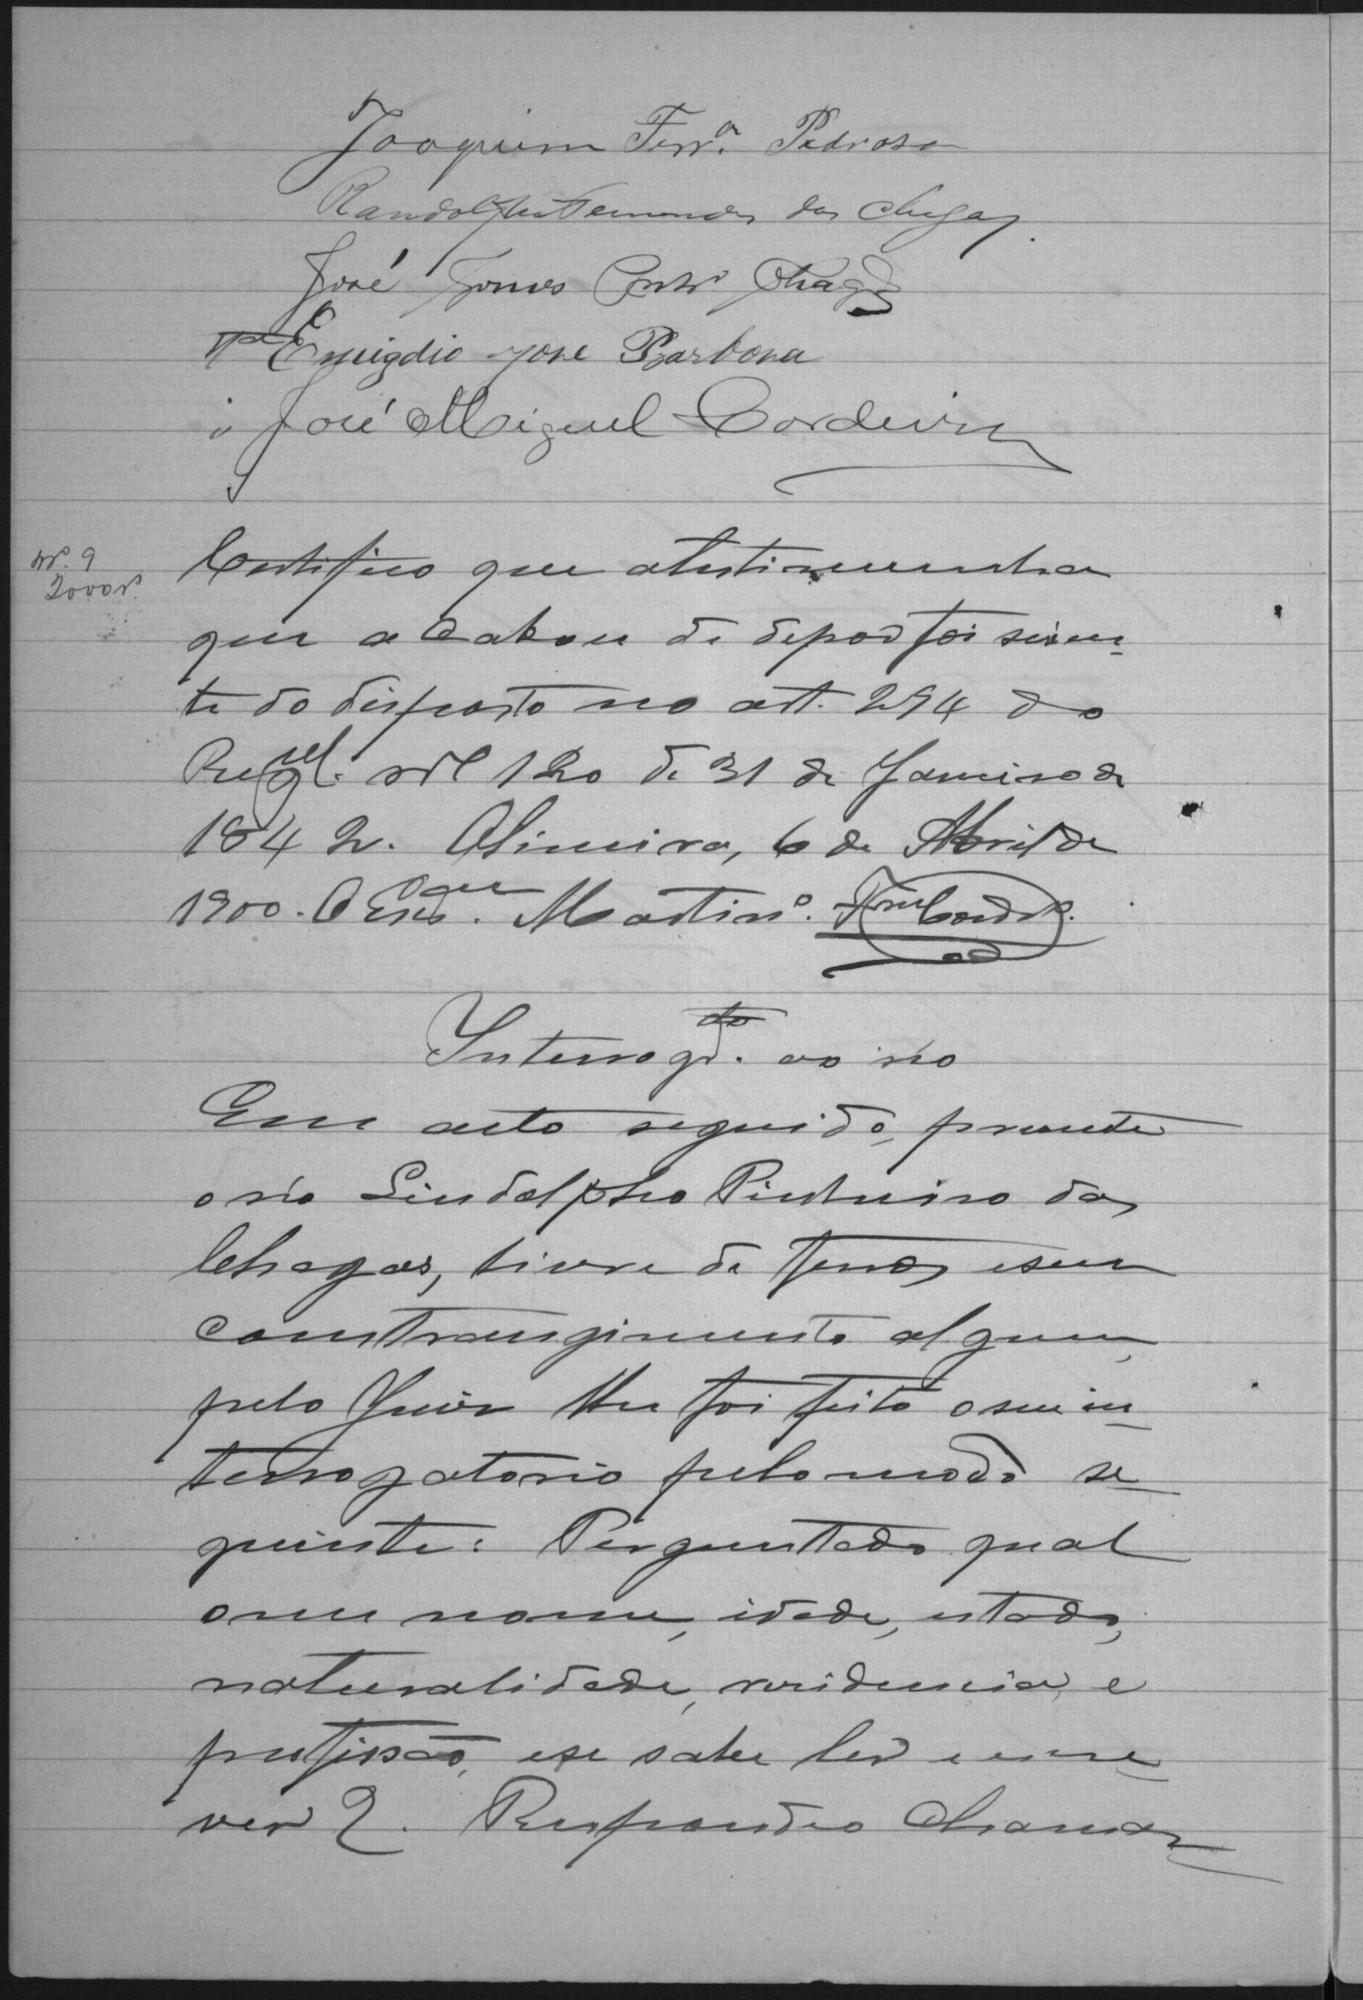 Joaquim Ferr.ª Pedrosa
Randolpho Fernandes das Chagas.
José Gomes Chagas
Emigdio Jose Barbosa
José Miguel Cordeiro
Nº. 9
2000 rs.
Certifico que a testimunha
que acabou de depor foi scien-
te do disposto no art. 294 do
Regul. nº 120 de 31 de Janeiro de
1842. Oliveira, 6 de Abril de
1900. O Escr.am Martin.º
Interrog.to ao réo
Em acto seguido, presente
o réo Lindolpho Pinheiro das
Chagas, livre de ferros e sem
constrangimento algum,
pelo Juiz lhe foi feito o seu in-
terrogatorio pelo modo se-
guinte: Perguntado qual
o seu nome, idade, estado,
naturalidade, residencia e
profissão, e se sabe ler e escre-
ver?. Respondeo chamar-